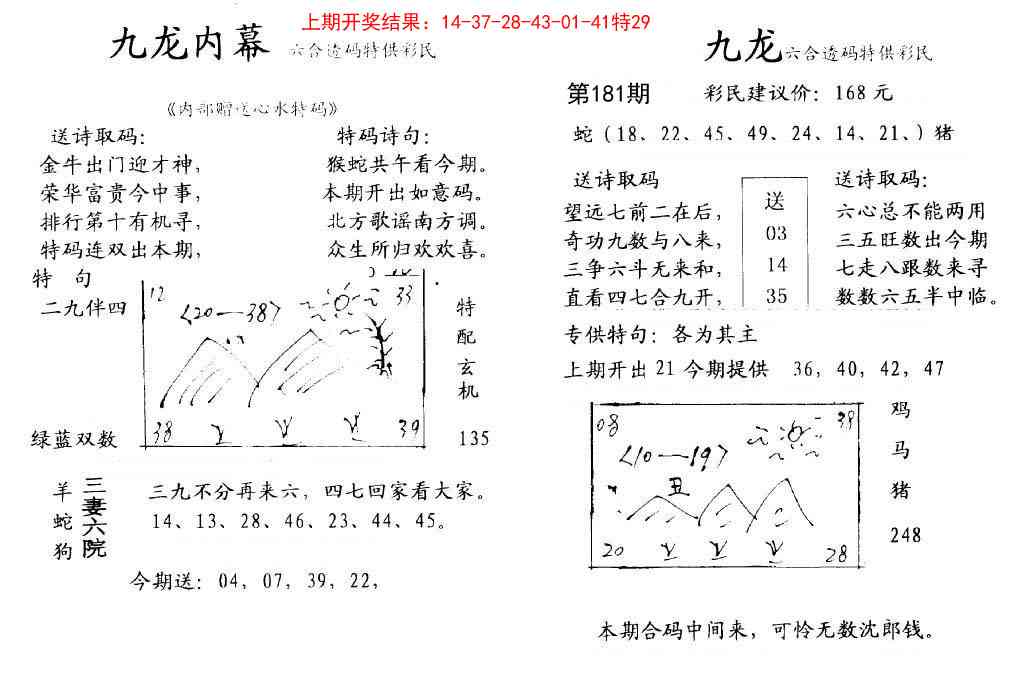 上期开奖结果：14-37-28-43-01-41特29
九龙内幕 六合透码特供彩民
《内部赠送心水特码》
送诗取码：
金牛出门迎才神，
荣华富贵今中事，
排行第十有机寻，
特码连双出本期，
特码诗句：
猴蛇共午看今期。
本期开出如意码。
北方歌谣南方调。
众生所归欢欢喜。
特 句
二九伴四
绿蓝双数
12
33
<20—38>
38
39
特
配
玄
机
135
羊
蛇
狗
三妻六院
三九不分再来六，四七回家看大家。
14、13、28、46、23、44、45。
今期送：04，07，39，22，
九龙 六合透码特供彩民
第181期 彩民建议价：168元
蛇（18、22、45、49、24、14、21、）猪
送诗取码
望远七前二在后，
奇功九数与八来，
三争六斗无来和，
直看四七合九开，
送
03
14
35
送诗取码：
六心总不能两用
三五旺数出今期
七走八跟数来寻
数数六五半中临。
专供特句：各为其主
上期开出21今期提供 36，40，42，47
08
<10—19>
丑
20
28
鸡
马
猪
248
本期合码中间来，可怜无数沈郎钱。